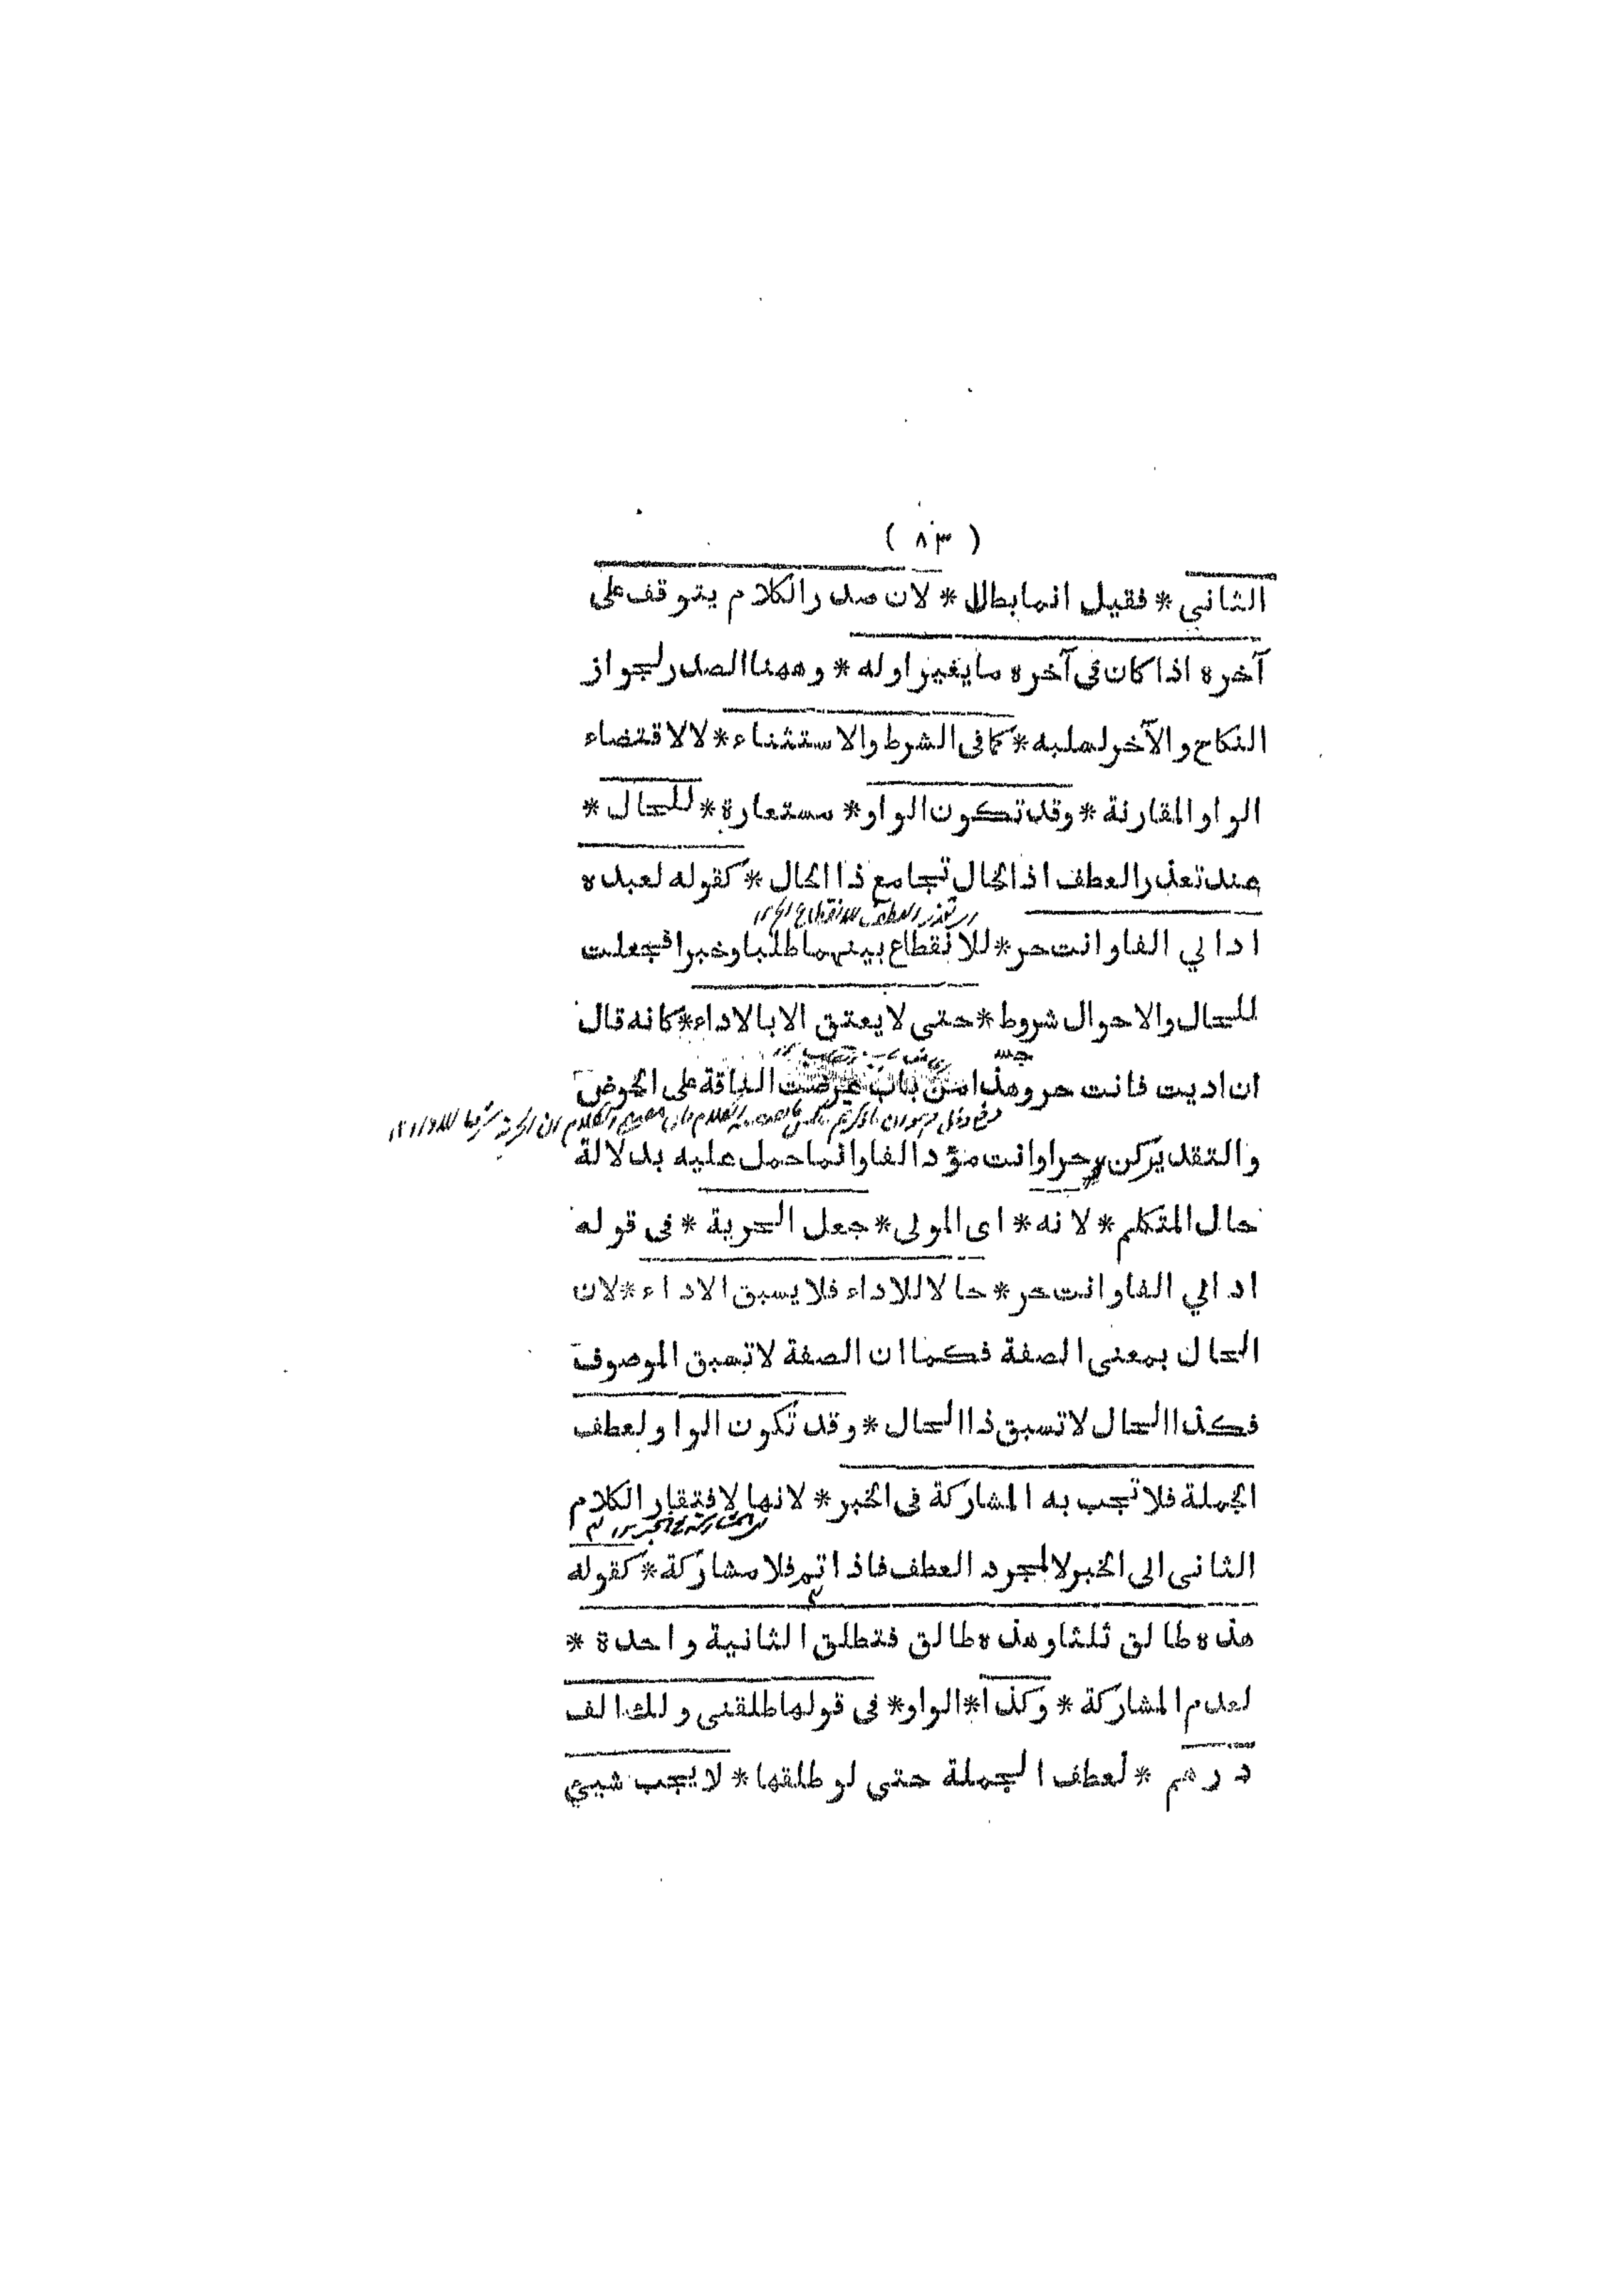 ( ٨٣ )
الثاني * فقيل انما بطل * لان صدر الكلام يتوقف على
آخره اذا كان في آخره ما يغير اوله * وههنا الصدر لجواز
النكاح والآخر لسلبه * كما فى الشرط والاستثناء * لا لاقتضاء
الواو المقارنة * وقد تكون الواو * مستعارة * للحال *
عند تعذر العطف اذ الحال تجامع ذا الحال * كقوله لعبده
اد الي الفا وانت حر * للانقطاع بينهما طلبا وخبرا فجعلت
للحال والاحوال شروط * حتى لا يعتق الا بالاداء * كانه قال
ان اديت فانت حر وهذا من باب عرضت الناقة على الحوض
والتقدير كن حرا وانت مؤد الفا وانما حمل عليه بدلالة
حال المتكلم * لانه * اى المولى * جعل الحرية * فى قوله
اد الي الفا وانت حر * حالا للاداء فلا يسبق الاداء * لان
الحال بمعنى الصفة فكما ان الصفة لا تسبق الموصوف
فكذا الحال لا تسبق ذا الحال * وقد تكون الواو لعطف
الجملة فلا تجب به المشاركة فى الخبر * لانها لافتقار الكلام
الثانى الى الخبر لا لمجرد العطف فاذا تم فلا مشاركة * كقوله
هذه طالق ثلثا وهذه طالق فتطلق الثانية واحدة *
لعدم المشاركة * وكذا * الواو * فى قولها طلقنى ولك الف
درهم * لعطف الجملة حتى لو طلقها * لا يجب شيئ